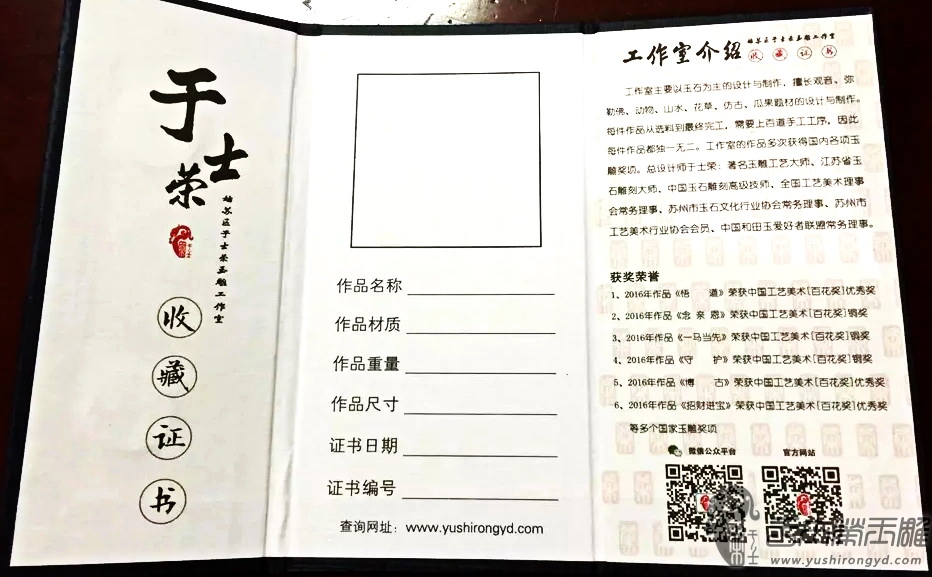 于士荣
姑苏区于士荣玉雕工作室
收藏证书
作品名称
作品材质
作品重量
作品尺寸
证书日期
证书编号
查询网址：www.yushirongyd.com
姑苏区于士荣玉雕工作室
工作室介绍 收藏证书
工作室主要以玉石为主的设计与制作，擅长观音、弥
勒佛、动物、山水、花草、仿古、瓜果题材的设计与制作。
每件作品从选料到最终完工，需要上百道手工工序，因此
每件作品都独一无二。工作室的作品多次获得国内各项玉
雕奖项。总设计师于士荣：著名玉雕工艺大师、江苏省玉
石雕刻大师、中国玉石雕刻高级技师、全国工艺美术理事
会常务理事、苏州市玉石文化行业协会常务理事、苏州市
工艺美术行业协会会员、中国和田玉爱好者联盟常务理事。
获奖荣誉
1、2016年作品《悟 道》荣获中国工艺美术[百花奖]优秀奖
2、2016年作品《念亲恩》荣获中国工艺美术[百花奖]铜奖
3、2016年作品《一马当先》荣获中国工艺美术[百花奖]铜奖
4、2016年作品《守 护》荣获中国工艺美术[百花奖]铜奖
5、2016年作品《博 古》荣获中国工艺美术[百花奖]优秀奖
6、2016年作品《招财进宝》荣获中国工艺美术[百花奖]优秀奖
等多个国家玉雕奖项
微信公众平台 官方网站
于士荣玉雕
www.yushirongyd.com